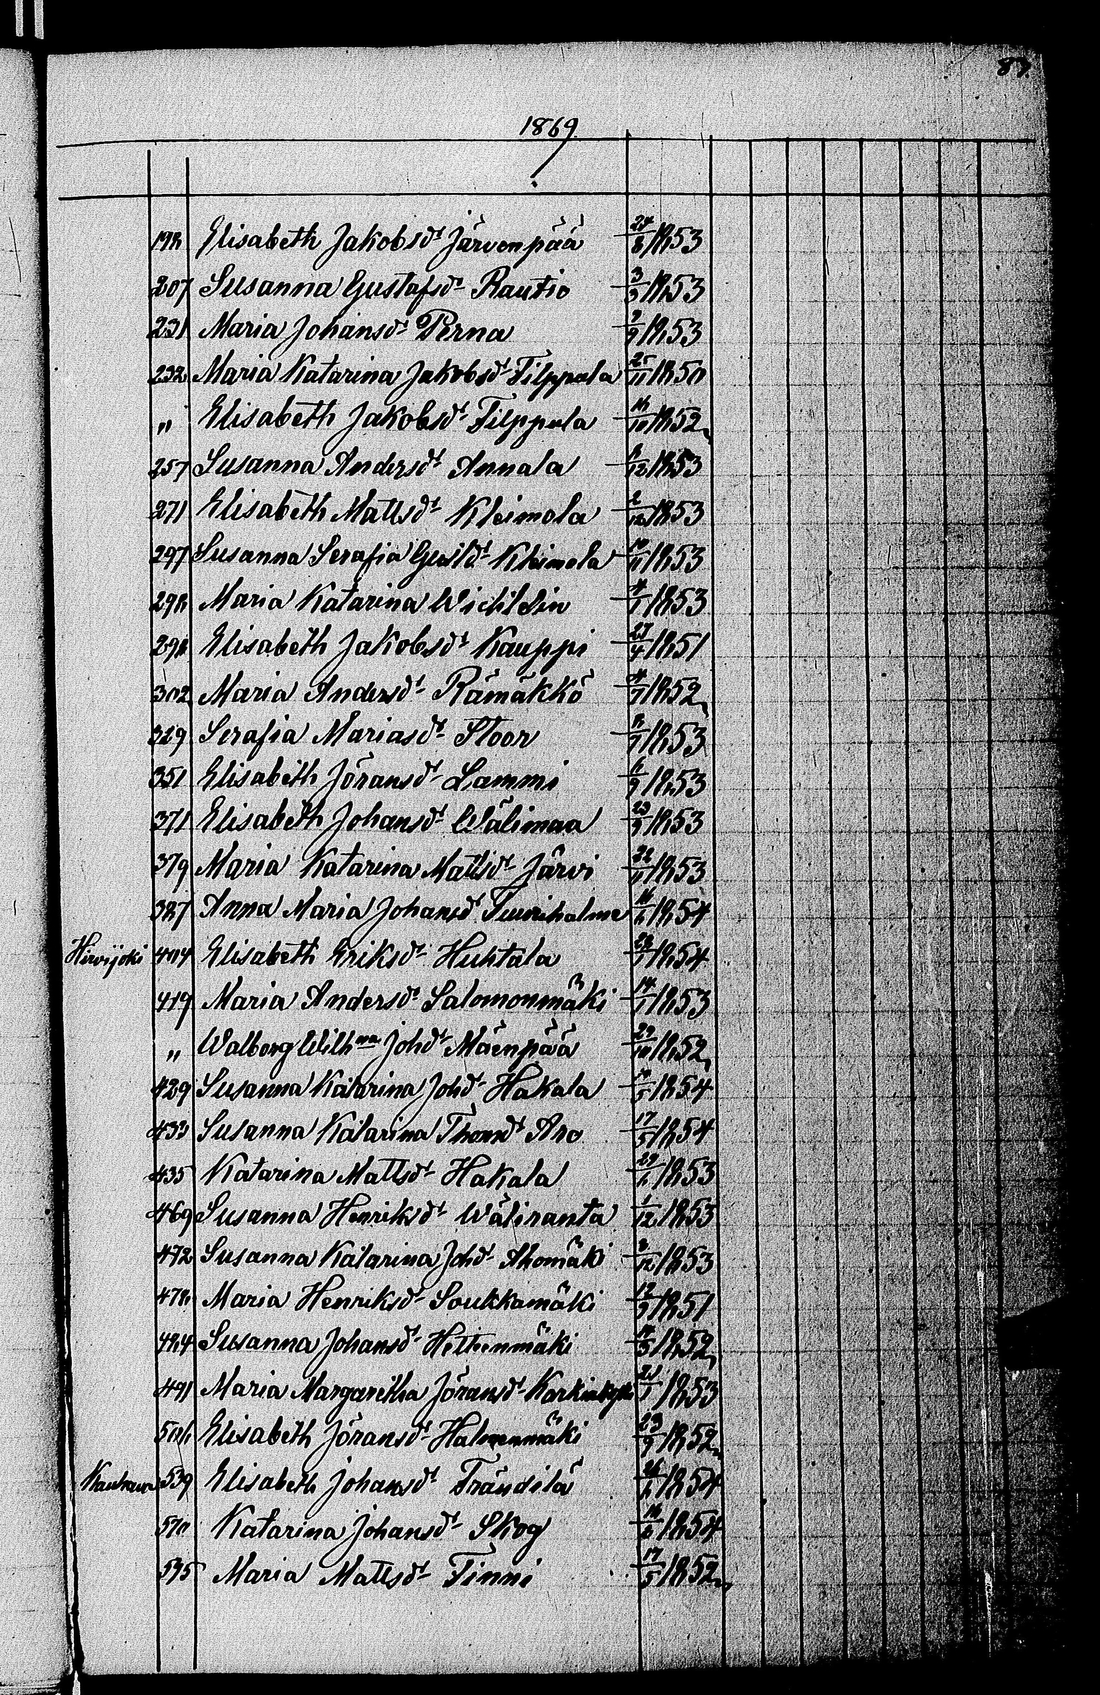 87.
1869.
198 Elisabeth Jakobsdt Järvenpää 24/8 1853
207 Susanna Gustafsdt Rautio 3/9 1853
231 Maria Johansdt Perna 2/9 1853
232 Maria Katarina Jakobsdt Filppula 25/11 1850
" Elisabeth Jakobsdt Filppula 1852
257 Susanna Andersdt Annala 1853
271 Elisabeth Mattsdt Kleimola 2/12 1853
297 Susanna Serafia Kleimola 1853
298 Maria Katarina 1853
298 Elisabeth Jakobsdt Kauppi 27/4 1851
302 Maria Andersdt Rämäkkö 1852
329 Serafia Mariasdt Stoor 1853
351 Elisabeth Jöransdt Lammi 6/9 1853
371 Elisabeth Johansdt Wälimaa 1853
379 Maria Katarina Mattsdt Järvi 22/11 1853
387 Anna Maria Johansdt 1854
Hirvijoki 404 Elisabeth Eriksdt Huhtala 1854
419 Maria Andersdt Salomonmäki 14/1 1853
" Walborg Wilhna Johdt Mäenpää 29/10 1852
429 Susanna Katarina Johdt Hakala 1854
433 Susanna Katarina Thomdt Aro 17/5 1854
435 Katarina Mattsdt Hakala 1853
469 Susanna Henriksdt Wäliranta 1/12 1853
472 Susanna Katarina Johdt Ahomäki 1853
478 Maria Henriksdt Soukkamäki 1851
484 Susanna Johansdt 1852
491 Maria Margaretha Jöransdt 1853
508 Elisabeth Jöransdt Halmenmäki 23/9 1852
539 Elisabeth Johansdt Frändilä 1854
570 Katarina Johansdt Skog 1854
595 Maria Mattsdt Finni 17/5 1852